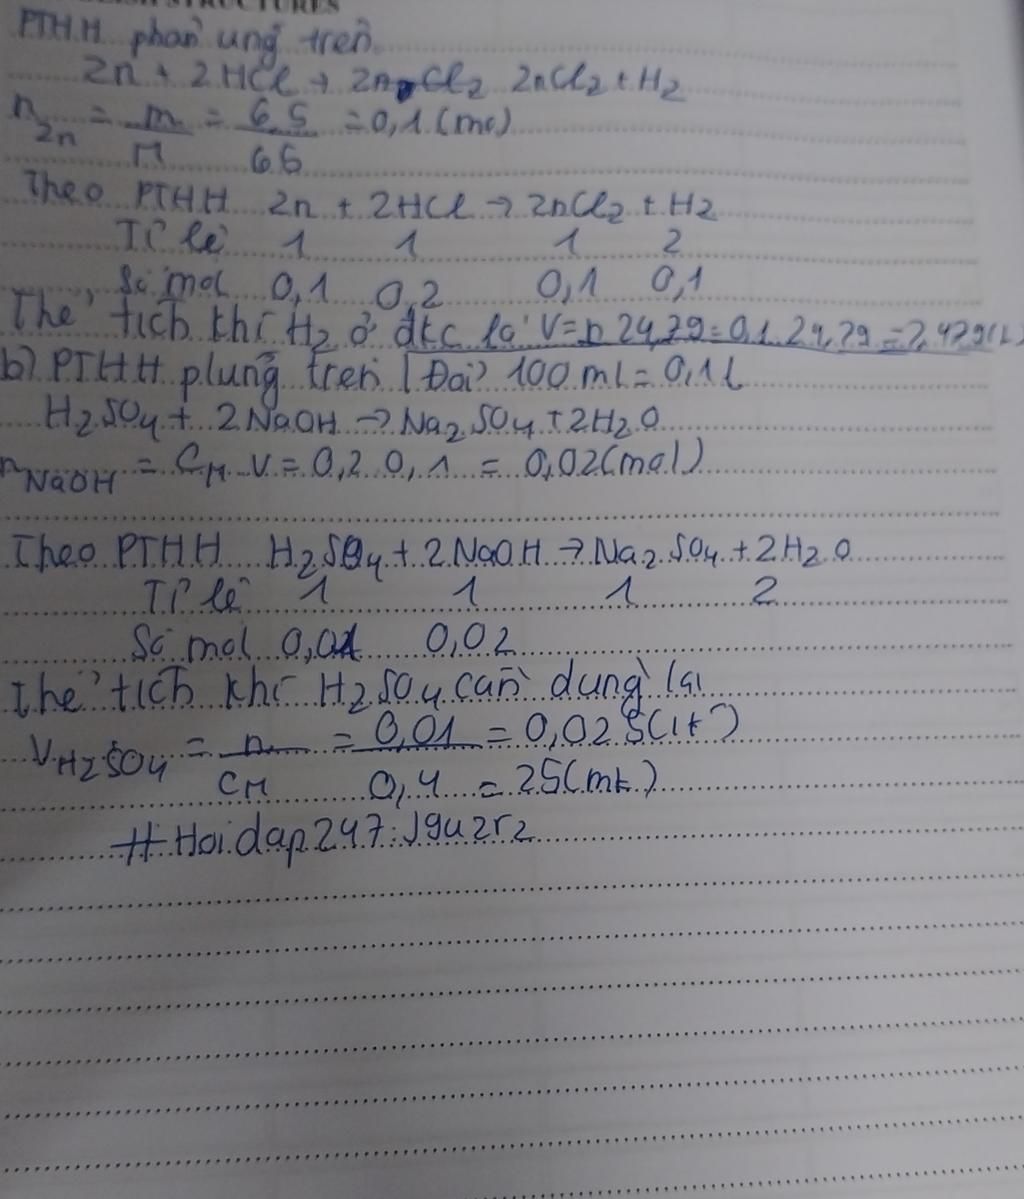 STRUCTURES
PTHH phản ứng trên.
Zn + 2HCl → ZnCl2 ZnCl2 + H2
nZn = m/M = 6,5/65 = 0,1 (mo)
Theo PTHH Zn + 2HCl → ZnCl2 + H2
Tỉ lệ 1 1 1 2
Số mol 0,1 0,2 0,1 0,1
Thể tích khí H2 ở đkc là V = n 24,79 = 0,1.24,79 = 2,479(L)
b) PTHH p/ứng trên | Đổi 100 ml = 0,1 L
H2SO4 + 2NaOH → Na2SO4 + 2H2O
nNaOH = CM.V = 0,2.0,1 = 0,02(mol)
Theo PTHH H2SO4 + 2NaOH → Na2SO4 + 2H2O
Tỉ lệ 1 1 1 2
Số mol 0,01 0,02
Thể tích khí H2SO4 cần dùng là
VH2SO4 = n/CM = 0,01/0,4 = 0,025(lít)
= 25(mL)
#Hoidap247: